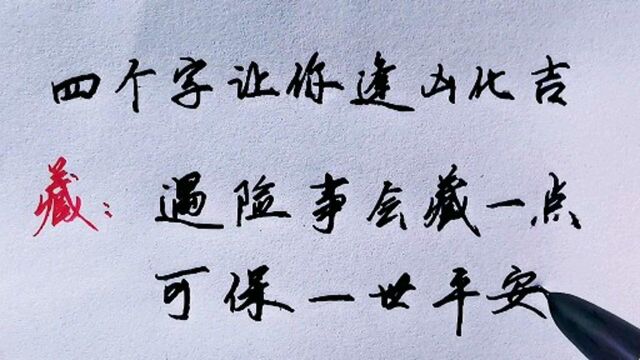 四个字让你逢凶化吉
藏：遇险事会藏一点
可保一世平安